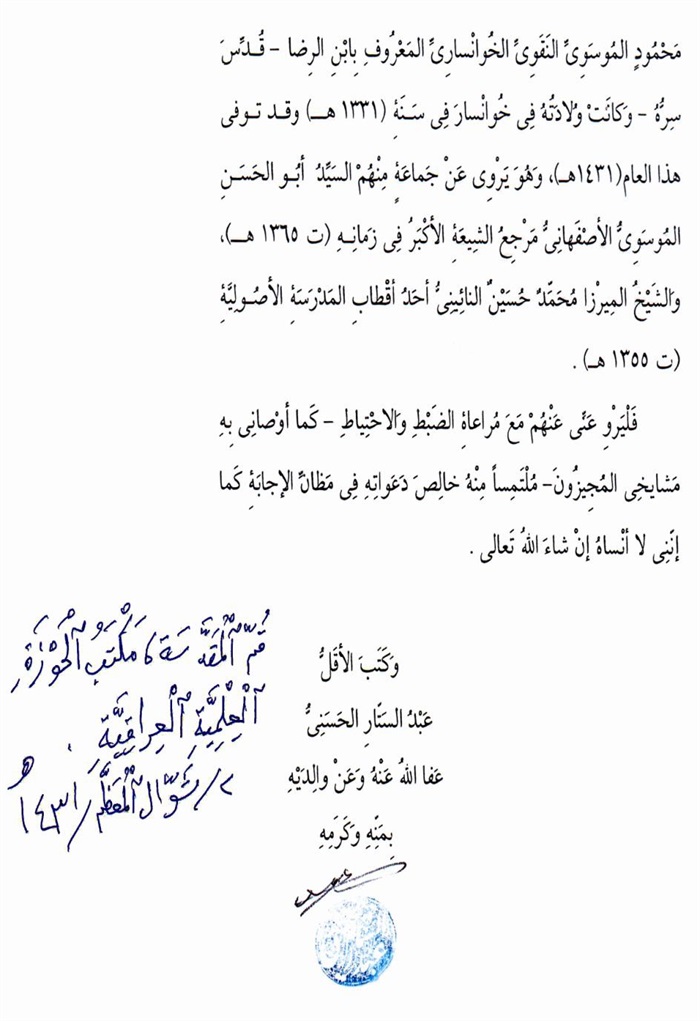 مَحْمُودٍ المُوسَوِىِّ النَّقَوِىِّ الخُوانْسارِىِّ المَعْرُوفِ بِابْنِ الرِضا – قُـدِّسَ
سِرُّهُ – وَكانَتْ وِلادَتُهُ فِى خُوانْسارَ فِى سَـنَةِ (١٣٣١ هـ) وقـد تـوفى
هذا العام(١٤٣١هـ)، وَهُوَ يَرْوِى عَنْ جَماعَةٍ مِنْهُمْ السَيِّدُ أبُـو الحَسَـنِ
المُوسَوِىُّ الأصْفَهانِىُّ مَرْجِعُ الشِيعَةِ الأكْبَرُ فِى زَمانِـهِ (ت ١٣٦٥ هـ)،
وَالشَيْخُ المِيرْزا مُحَمَّدُ حُسَيْنٌ النائِينِىُّ أحَدُ أقْطابِ المَدْرَسَةِ الأصُـولِيَّةِ
(ت ١٣٥٥ هـ) .
فَلْيَرْوِ عَنِّى عَنْهُمْ مَعَ مُراعاةِ الضَبْطِ وَالاحْتِياطِ – كَما أوْصانِى بِهِ
مَشايخِى المُجِيزُونَ– مُلْتَمِساً مِنْهُ خالِصَ دَعَواتِهِ فِى مَظانِّ الإجابَةِ كَما
إنَّنِى لا أنْساهُ إنْ شاءَ اللهُ تَعالى .
وَكَتَبَ الأقَلُّ
عَبْدُ السَتّارِ الحَسَنِىُّ
عَفا اللهُ عَنْهُ وَعَنْ والِدَيْهِ
بِمَنِّهِ وَكَرَمِهِ
قُمّ ٱلْمُقَدَّسَة، مَكْتَبُ ٱلْحَوْزَةِ
ٱلْعِلْمِيَّةِ ٱلْعِراقِيَّةِ .
٢/شَوّال ٱلْمُعَظَّم/١٤٣١هـ